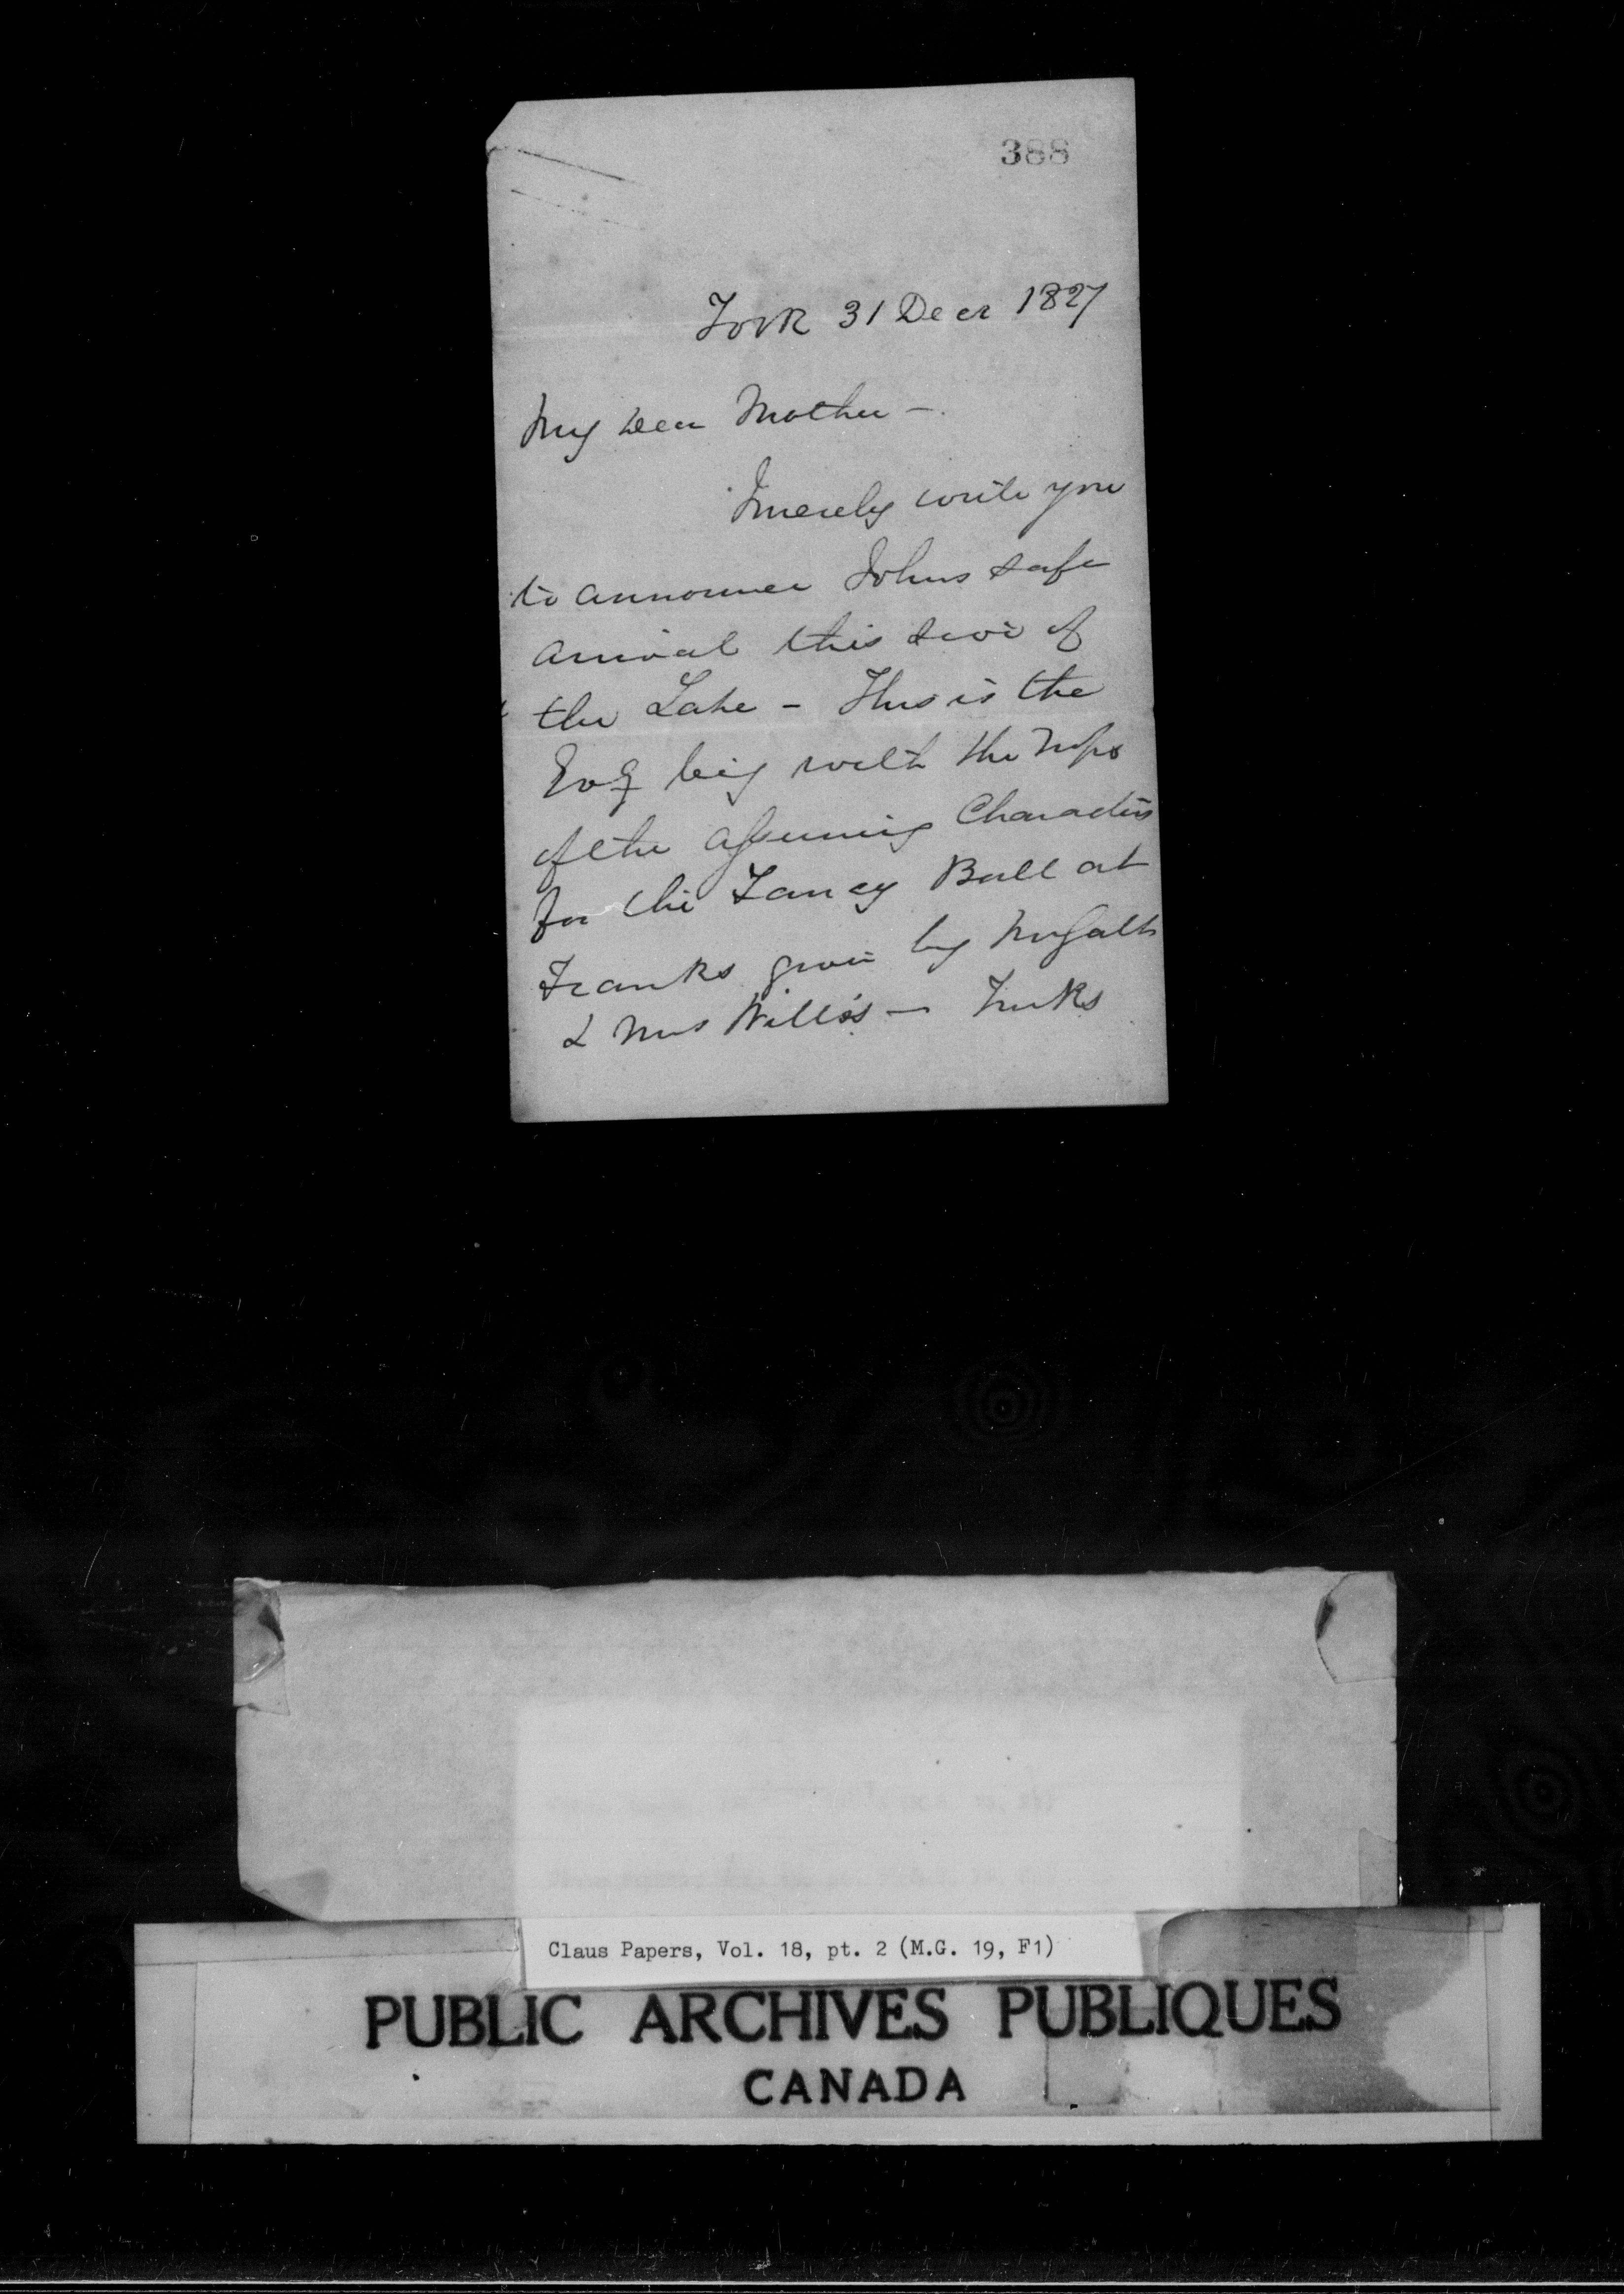 388
York 31 Decr 1827
My Dear Mother —
I merely write you
to announce Johns safe
arrival this side of
the Lake - This is the
Evg big with the
of the assuming Characters
for the Fancy Ball at
Franks given by Mr Galt
& Mrs Willis — Turks
Claus Papers, Vol. 18, pt. 2 (M.G. 19, F1)
PUBLIC ARCHIVES PUBLIQUES
CANADA